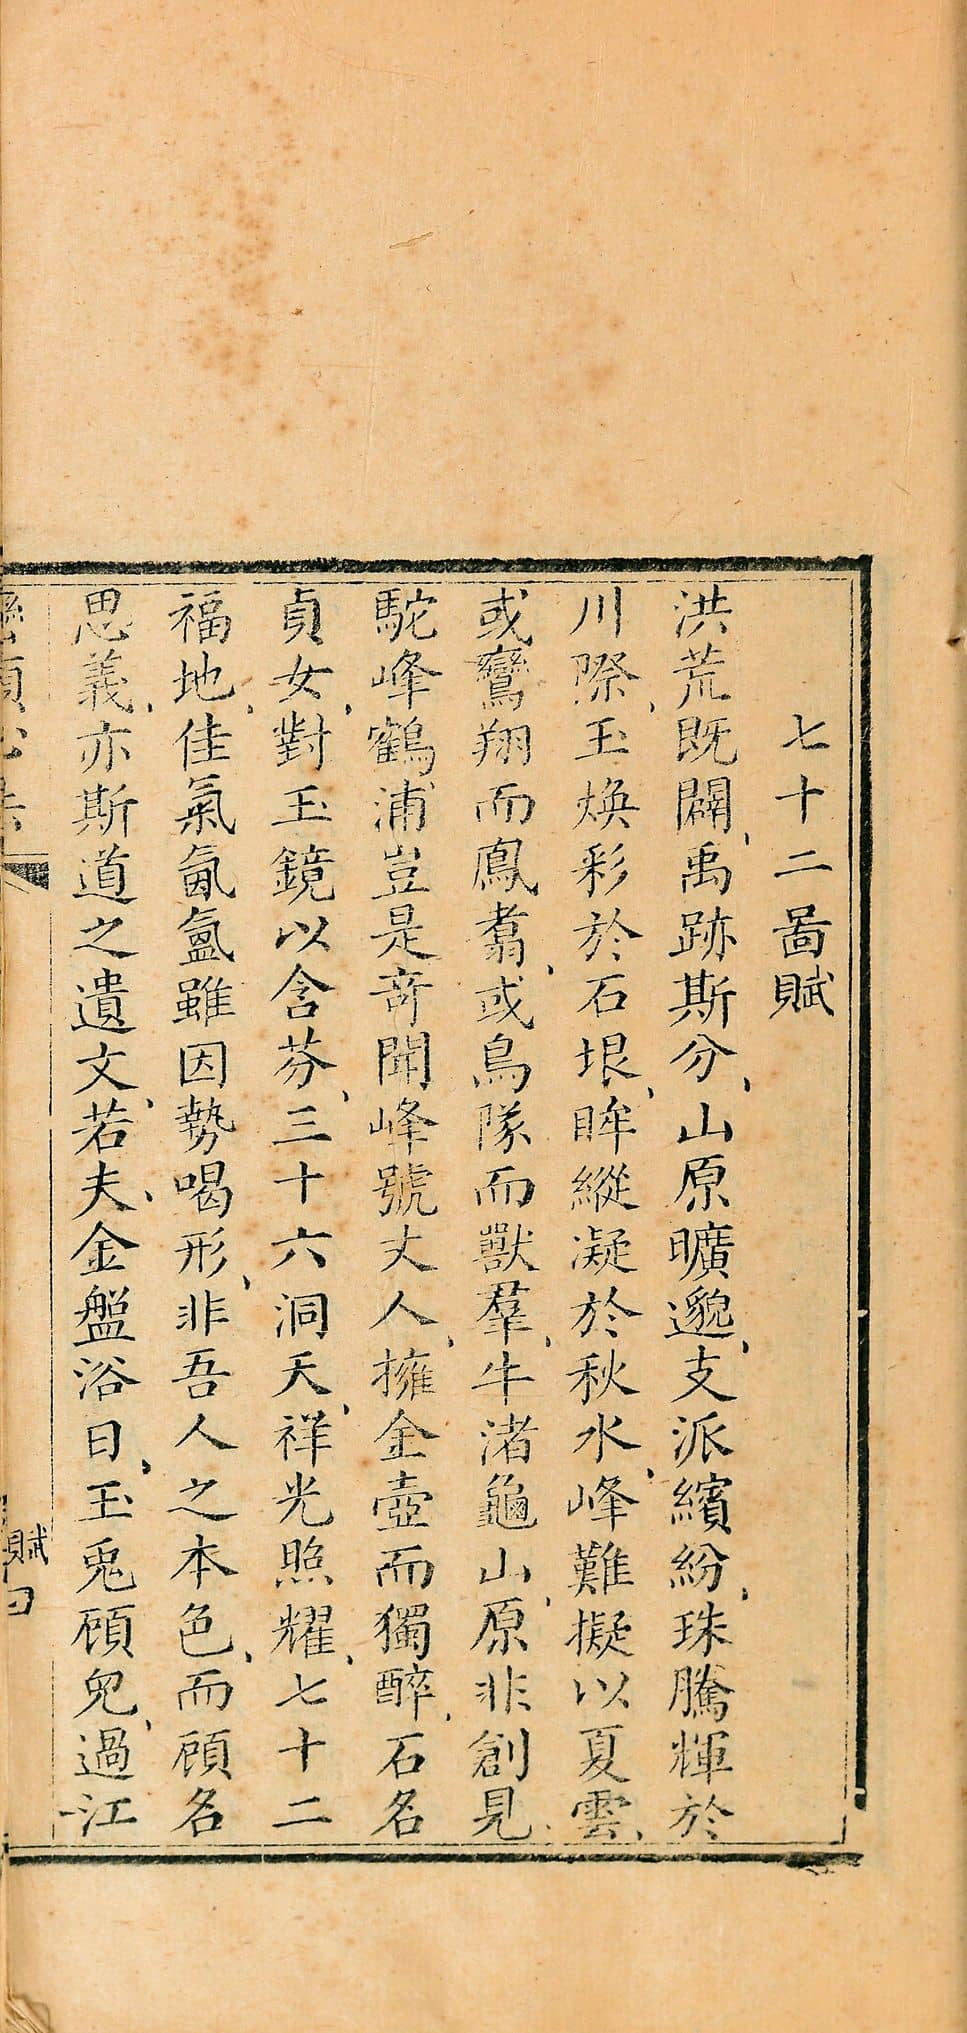 七十二啚賦
洪荒既闢、禹跡斯分、山原曠邈、支派繽紛、珠騰輝於
川際、玉煥彩於石垠、眸縱凝於秋水、峰難擬以夏雲、
或鸞翔而鳳翥、或鳥隊而獸羣、牛渚龜山、原非創見、
駝峰鶴浦豈是竒聞峰號丈人、擁金壺而獨醉、石名
貞女、對玉鏡以含芬、三十六洞天、祥光照耀、七十二
福地、佳氣氤氳雖因勢喝形、非吾人之本色、而顧名
思義、亦斯道之遺文、若夫、金盤浴日、玉兎顧兒、過江
賦